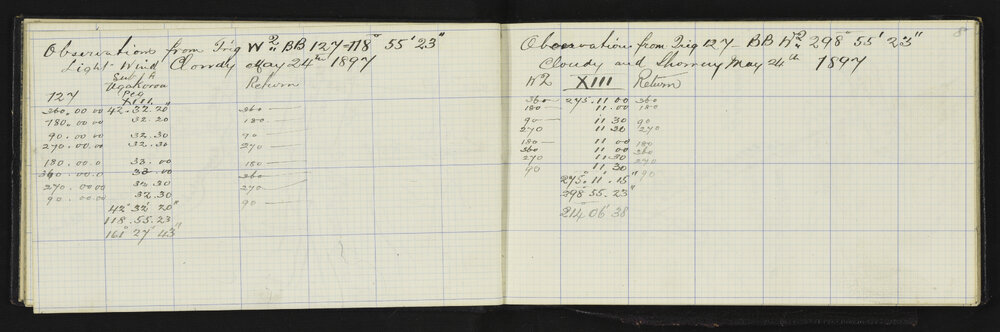 Observations from Trig W2 BB 127 - 118° 55' 23"
Light Wind Cloudy May 24th 1897
Peg Return
127 XIII
360.00 00 42.32.20 360
180.00 00 32.20 180
90.00 00 32.30 90
270.00.00 32.30 270
180.00.0 33.00 180
360.00.00 33.00 360
270.00.00 32.30 270
90.00.00 32.30 90
42° 32' 20"
118.55.23
161° 27' 43"
Observation from Trig 127 - BB W2 298° 55' 23"
Cloudy and Showery May 24th 1897
W2 XIII Return
360 275.11 00 360
180 11.00 180
90 11 30 90
270 11 30 270
180 11 00 180
360 11 00 360
270 11.30 270
90 11.30 90
275° 11' 15"
298 55.23
214 06' 38